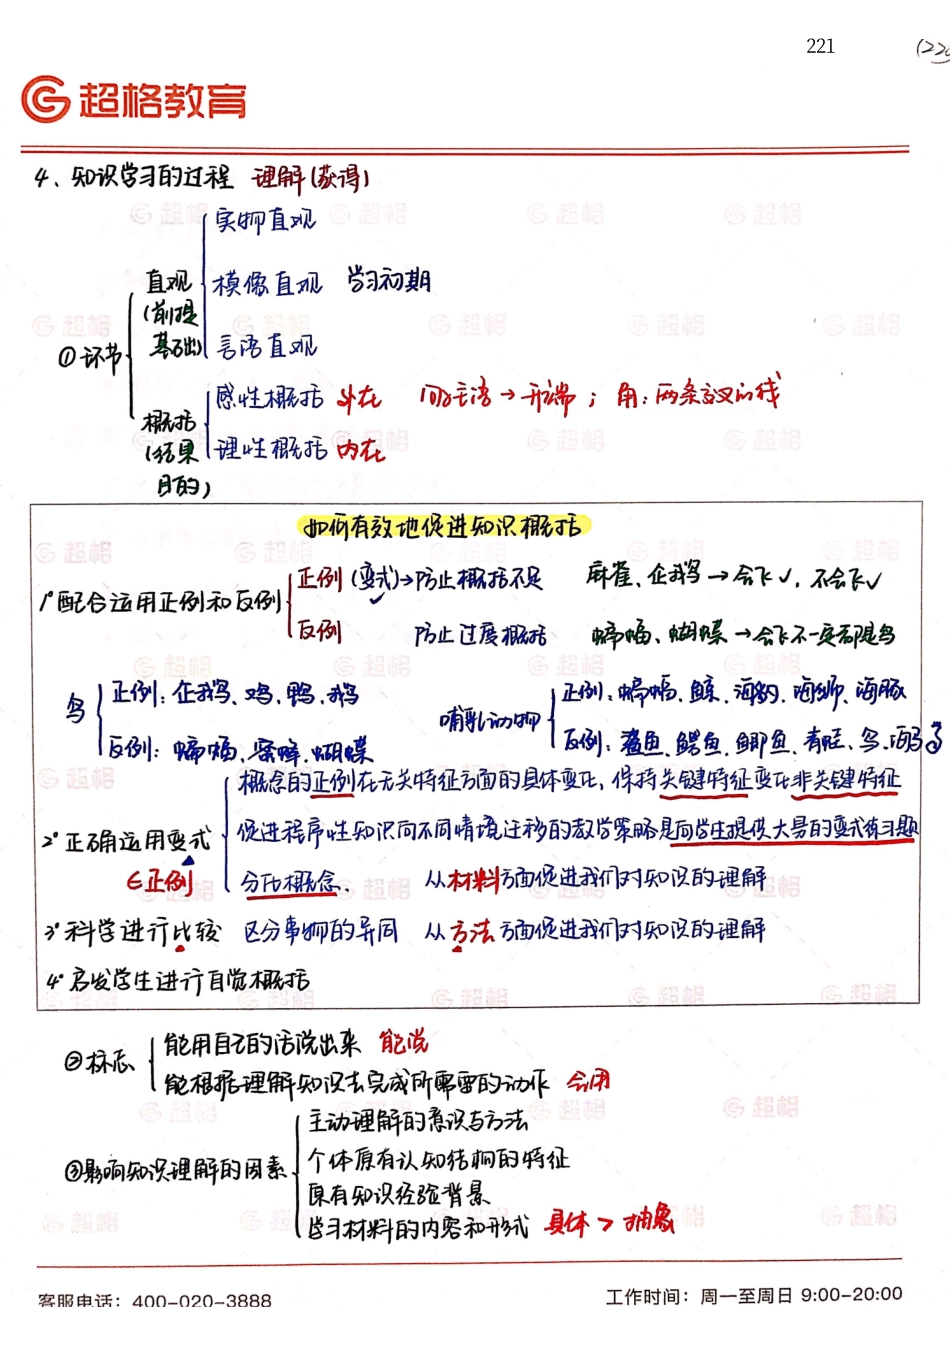 221
超格教育
4、知识学习的过程 理解(获得)
①环节
直观(前提基础)
实物直观
模像直观 学习初期
言语直观
概括(结果目的)
感性概括 外在 主语→开端；角：两条交叉的线
理性概括 内在
如何有效地促进知识概括
1°配合运用正例和反例
正例(变式)→防止概括不足 麻雀、企鹅→会飞✓、不会飞✓
反例 防止过度概括 蝙蝠、蝴蝶→会飞不一定都是鸟
鸟
正例：企鹅、鸡、鸭、鹅
反例：蝙蝠、蜜蜂、蝴蝶
哺乳动物
正例：蝙蝠、鲸、海豹、海狮、海豚
反例：鲨鱼、鳄鱼、鲫鱼、青蛙、鸟、海马
2°正确运用变式
∈正例
概念的正例在无关特征方面的具体变化，保持关键特征变化非关键特征
促进程序性知识向不同情境迁移的教学策略是向学生提供大量的变式练习题
分化概念. 从材料方面促进我们对知识的理解
3°科学进行比较 区分事物的异同 从方法方面促进我们对知识的理解
4°启发学生进行自觉概括
②标志
能用自己的话说出来 能说
能根据理解知识去完成所需要的动作 会用
③影响知识理解的因素
主动理解的意识与方法
个体原有认知结构的特征
原有知识经验背景
学习材料的内容和形式 具体＞抽象
客服电话：400-020-3888
工作时间：周一至周日 9:00-20:00